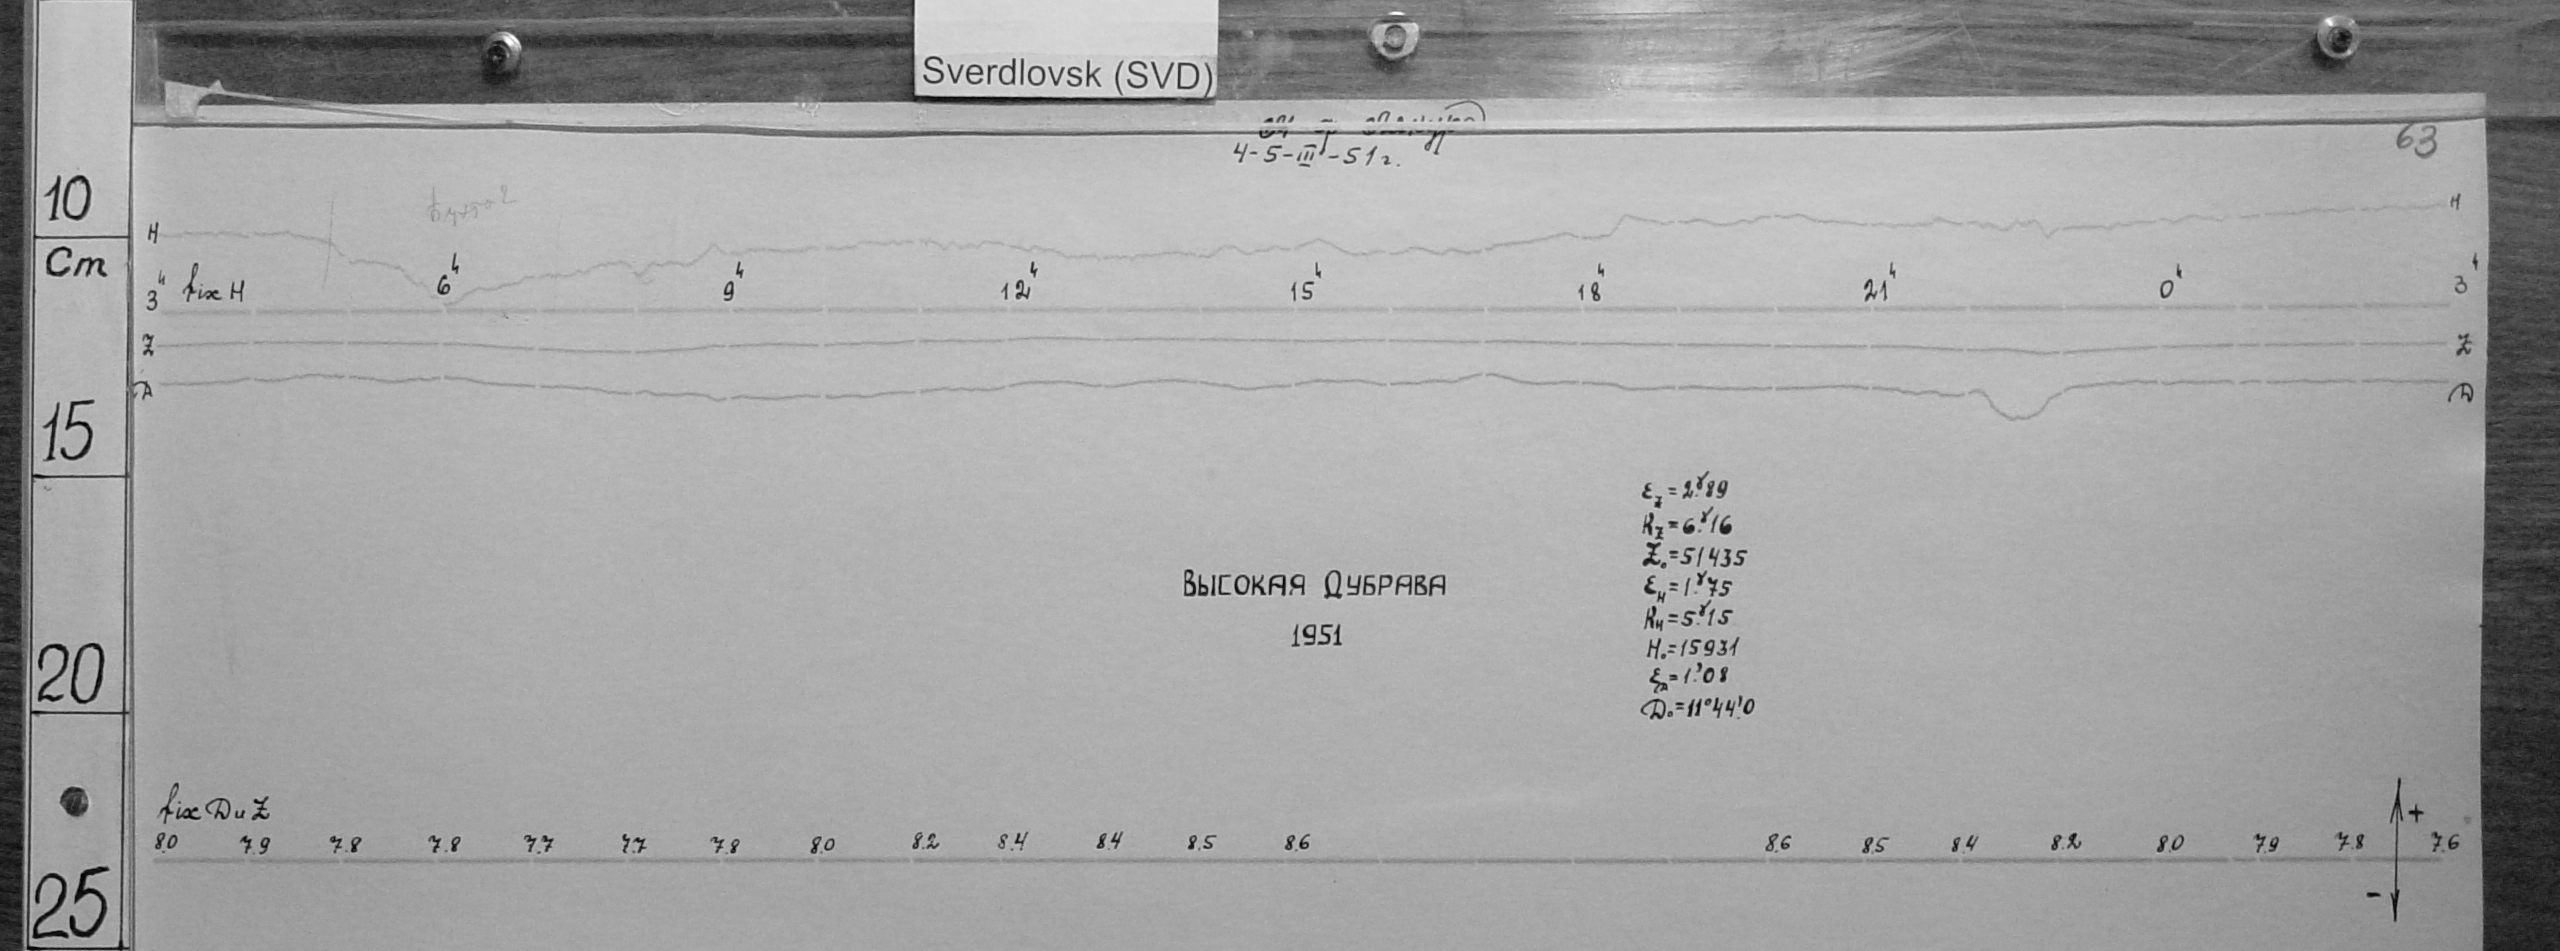 Sverdlovsk (SVD)
4-5-III-51 г.
63
10
Cm
15
20
25
H H
3ч fix H 6ч 9ч 12ч 15ч 18ч 21ч 0ч 3ч
Z Z
Д D
εz = 2.γ89
Kz = 6.γ16
Z₀ = 51435
εH = 1.γ75
KH = 5.γ15
H₀ = 15931
εD = 1.'08
D₀ = 11°44.'0
ВЫСОКАЯ ДУБРАВА
1951
fix D и Z
8.0 7.9 7.8 7.8 7.7 7.7 7.8 8.0 8.2 8.4 8.4 8.5 8.6 8.6 8.5 8.4 8.2 8.0 7.9 7.8 7.6
+
-